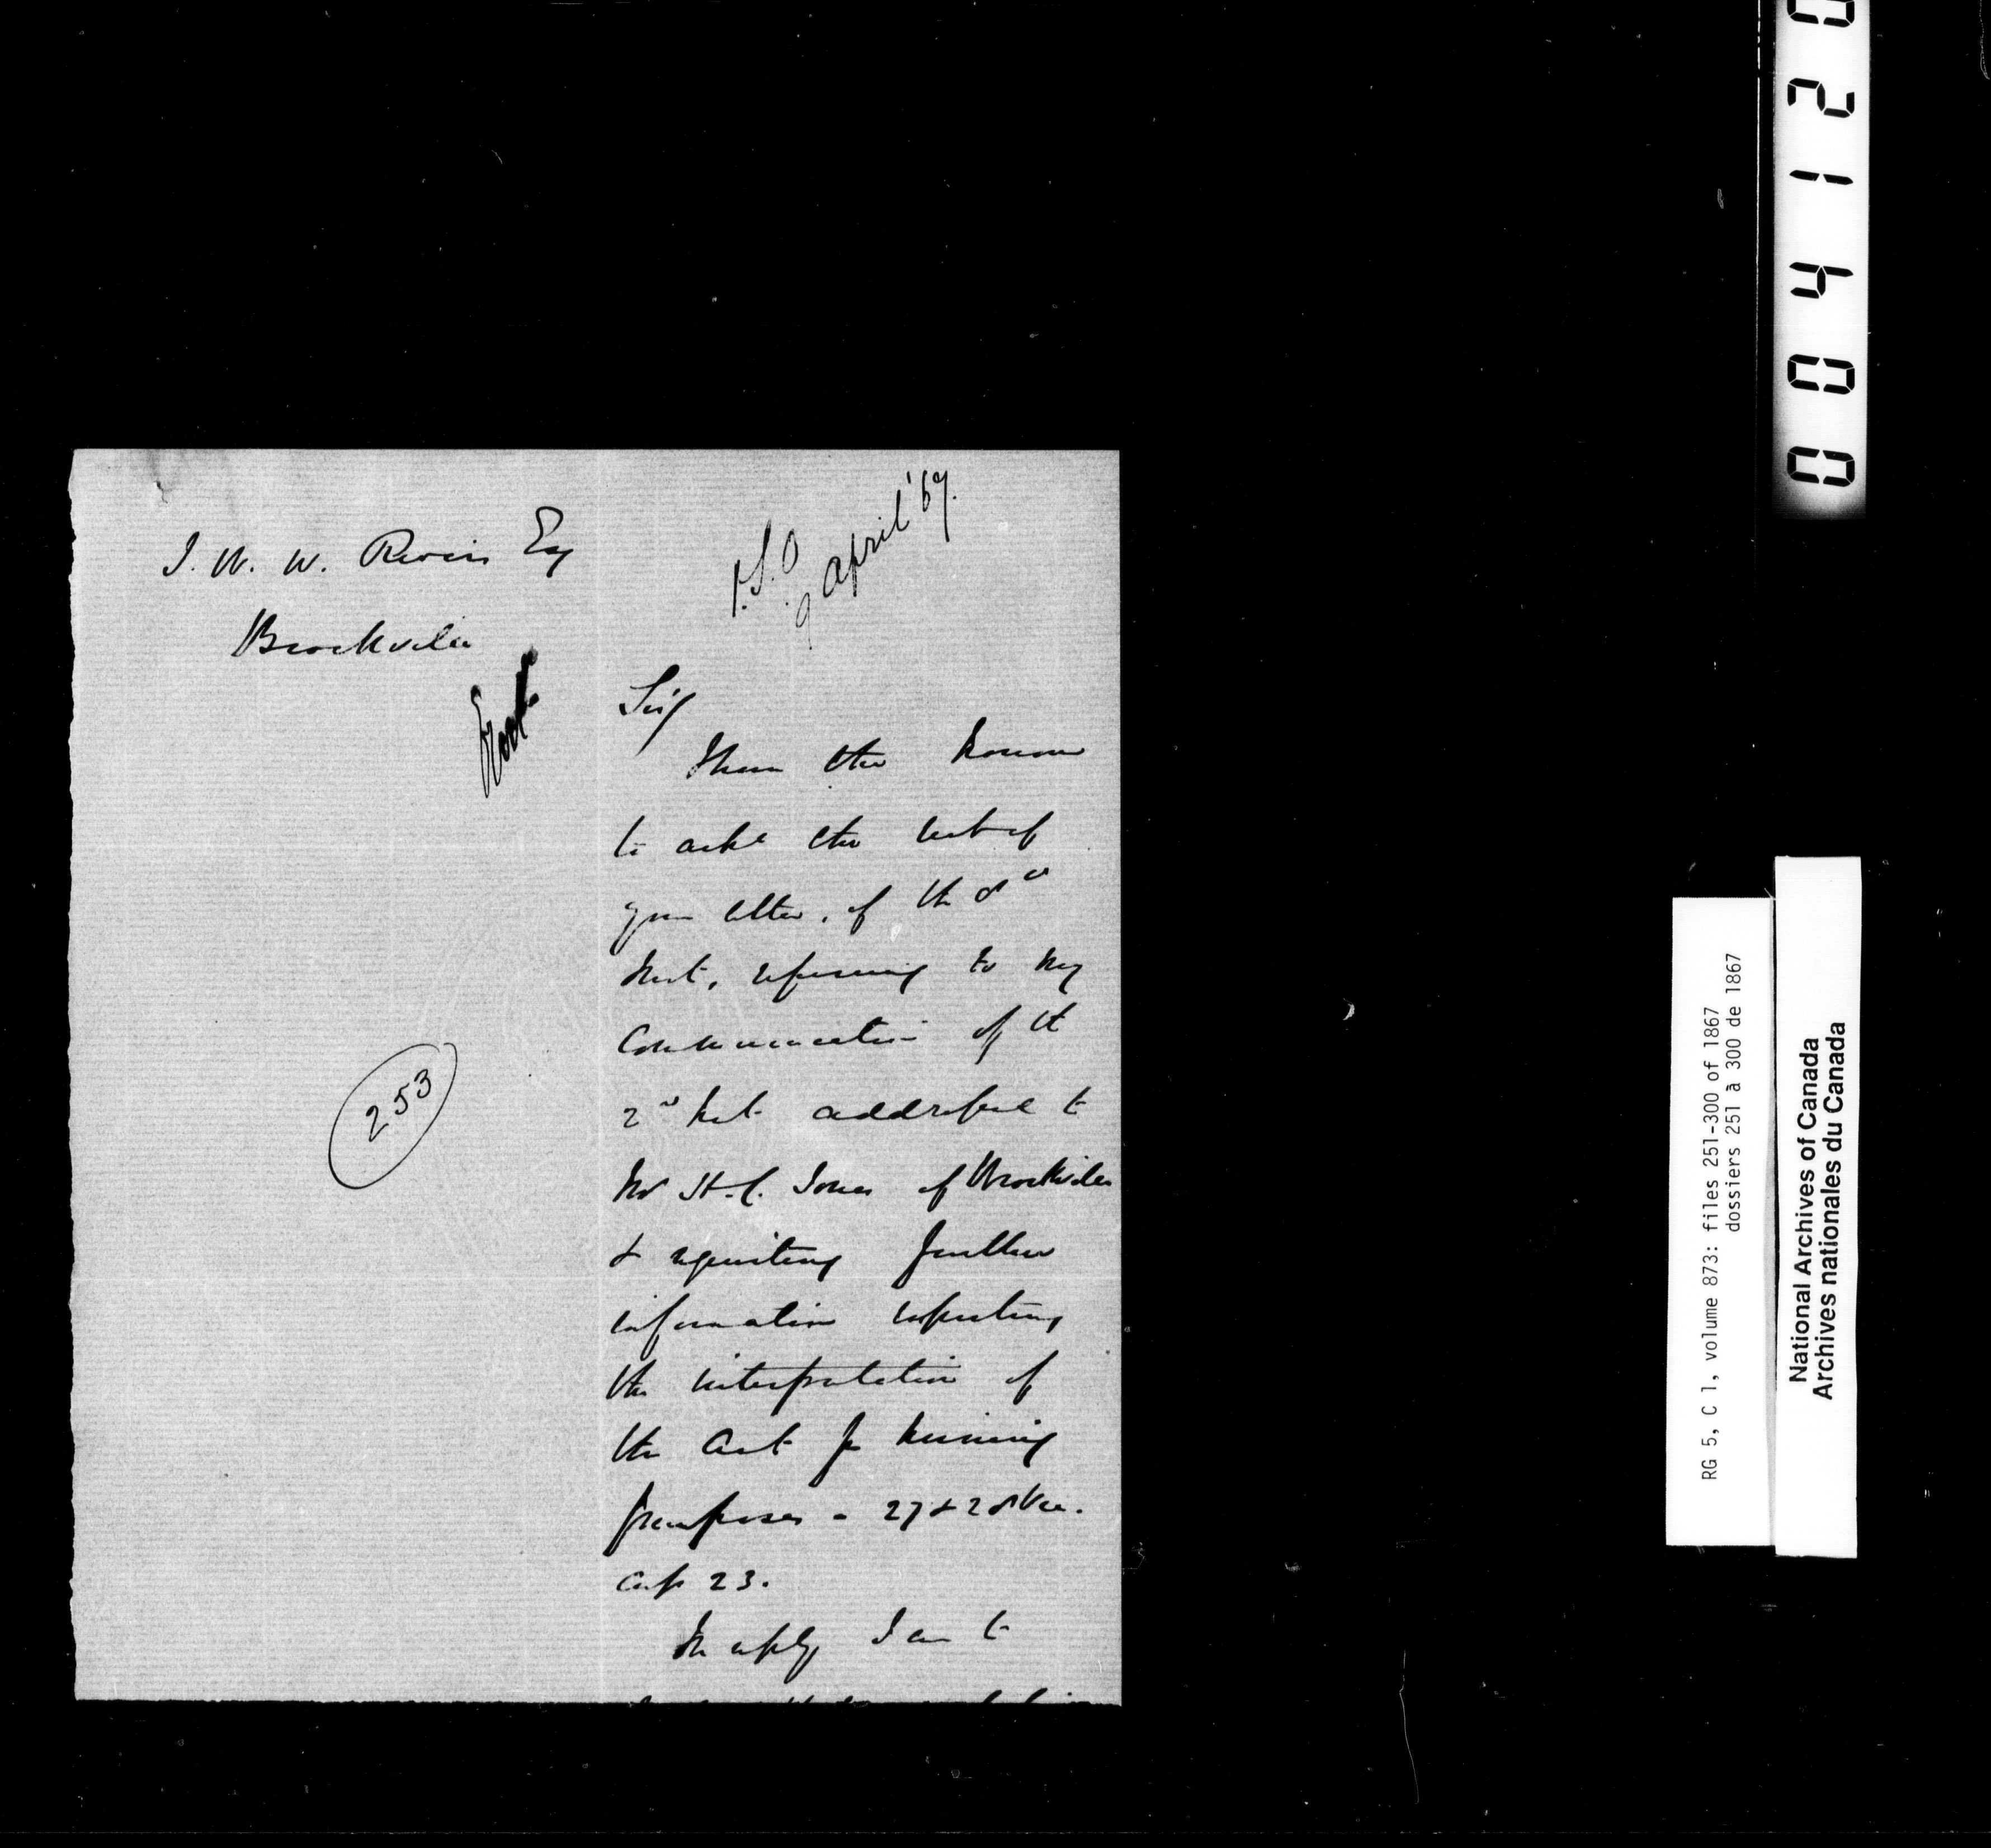 J. W. W.
Brockville
P.S.O
9 April '67.
Sir
I have the honour
to acke the rect of
your letter, of the 8th
inst, referring to my
Communication of the
2nd inst addressed to
Mr H. C. Jones of Brockville
& requesting further
information respecting
the interpretation of
the Act for mining
purposes - 27 & 28 Vic.
Cap 23.
In reply I am to
253
0 0 4 1 2 0
RG 5, C 1, volume 873: files 251-300 of 1867
dossiers 251 à 300 de 1867
National Archives of Canada
Archives nationales du Canada